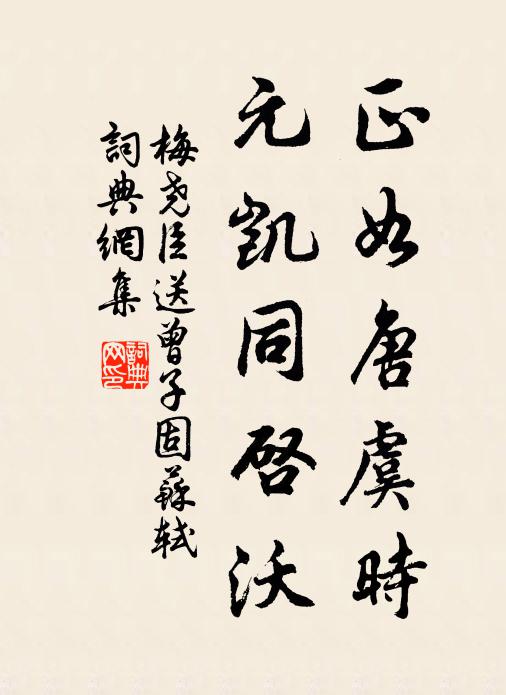 正如唐虞時
元凱同啓沃
梅尧臣送曾子固蘇軾
詞典網集
詞典网印